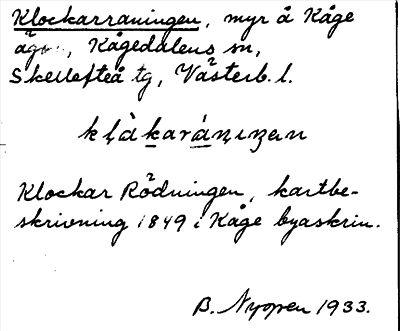 Klockarraningen, myr å Kåge
ägor, Kågedalens sn,
Skellefteå tg, Västerb. l.
kḷàkaráṇıŋæn
Klockar Rödningen, kartbe-
skrivning 1849 i Kåge byaskrin.
B. Nyopen 1933.